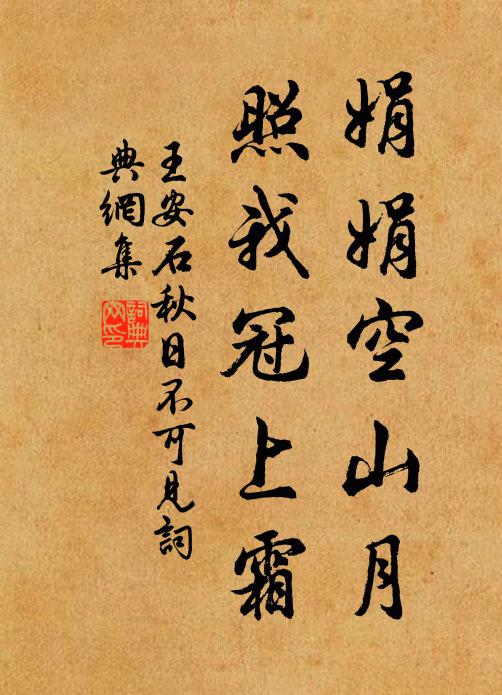 娟娟空山月
照我冠上霜
王安石秋日不可見詞
典網集
詞典
网印